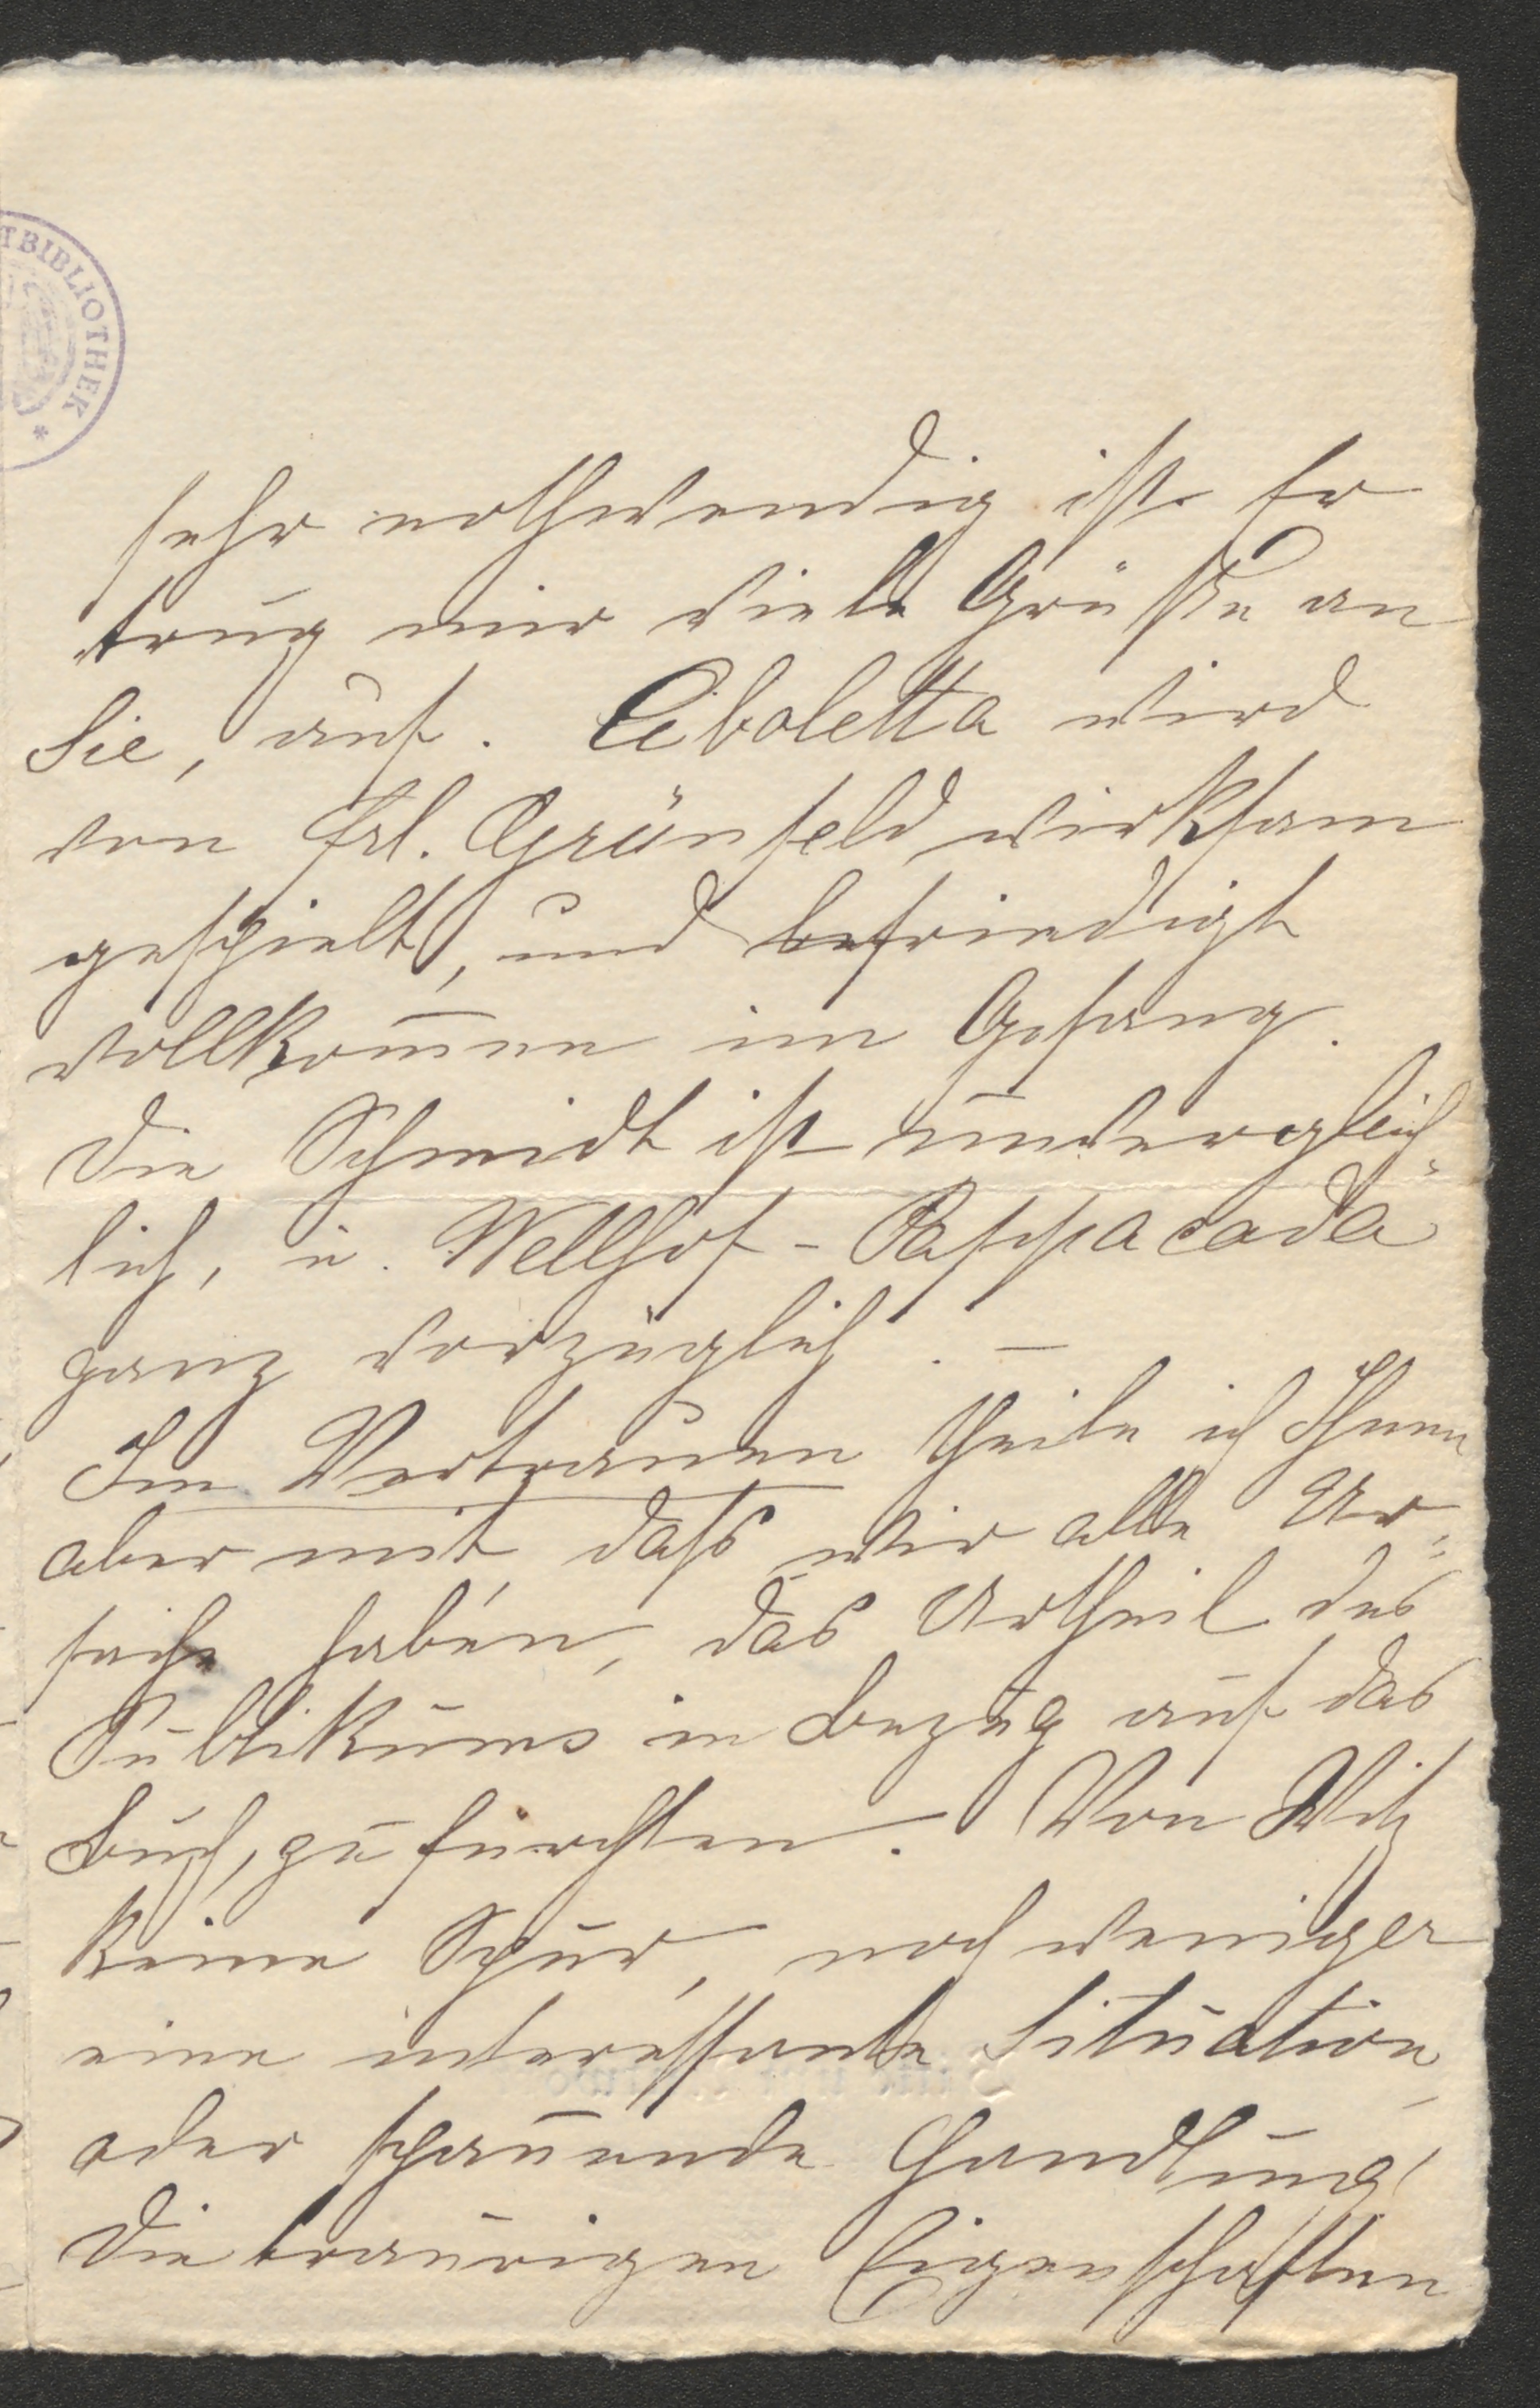 TBIBLIOTHEK
*
sehr nothwendig ist. Er
trug mir viele Grüße an
Sie, auf. Ciboletta wird
von Frl. Grünfeld wirksam
gespielt, und befriedigt
vollkom̅en im Gesang.
Die Schmidt ist unvergleich-
lich, u. Wellhof-Pappacoda
ganz vorzüglich. –
Im Vertrauen theile ich Ihnen
aber mit, daß wir alle Ur-
sache haben, das Urtheil des
Publikums in Bezug auf das
Buch, zu fürchten. Von Witz
keine Spur, noch weniger
eine interessante Situation,
oder span̅ende Handlung,
die traurigen Eigenschaften